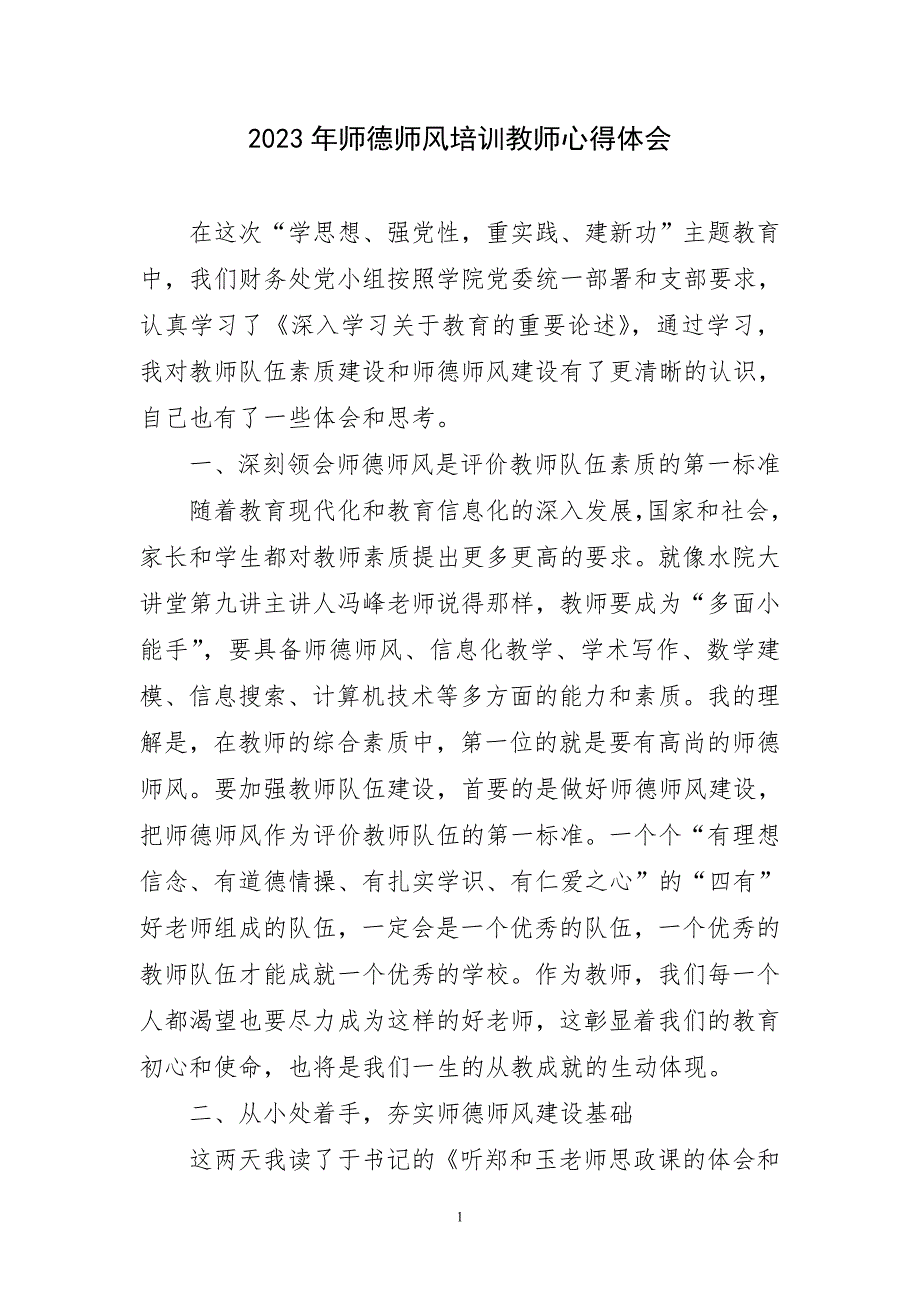 2023年师德师风培训教师心得体会
在这次“学思想、强党性，重实践、建新功”主题教育
中，我们财务处党小组按照学院党委统一部署和支部要求，
认真学习了《深入学习关于教育的重要论述》，通过学习，
我对教师队伍素质建设和师德师风建设有了更清晰的认识，
自己也有了一些体会和思考。
一、深刻领会师德师风是评价教师队伍素质的第一标准
随着教育现代化和教育信息化的深入发展，国家和社会，
家长和学生都对教师素质提出更多更高的要求。就像水院大
讲堂第九讲主讲人冯峰老师说得那样，教师要成为“多面小
能手”，要具备师德师风、信息化教学、学术写作、数学建
模、信息搜索、计算机技术等多方面的能力和素质。我的理
解是，在教师的综合素质中，第一位的就是要有高尚的师德
师风。要加强教师队伍建设，首要的是做好师德师风建设，
把师德师风作为评价教师队伍的第一标准。一个个“有理想
信念、有道德情操、有扎实学识、有仁爱之心”的“四有”
好老师组成的队伍，一定会是一个优秀的队伍，一个优秀的
教师队伍才能成就一个优秀的学校。作为教师，我们每一个
人都渴望也要尽力成为这样的好老师，这彰显着我们的教育
初心和使命，也将是我们一生的从教成就的生动体现。
二、从小处着手，夯实师德师风建设基础
这两天我读了于书记的《听郑和玉老师思政课的体会和
1